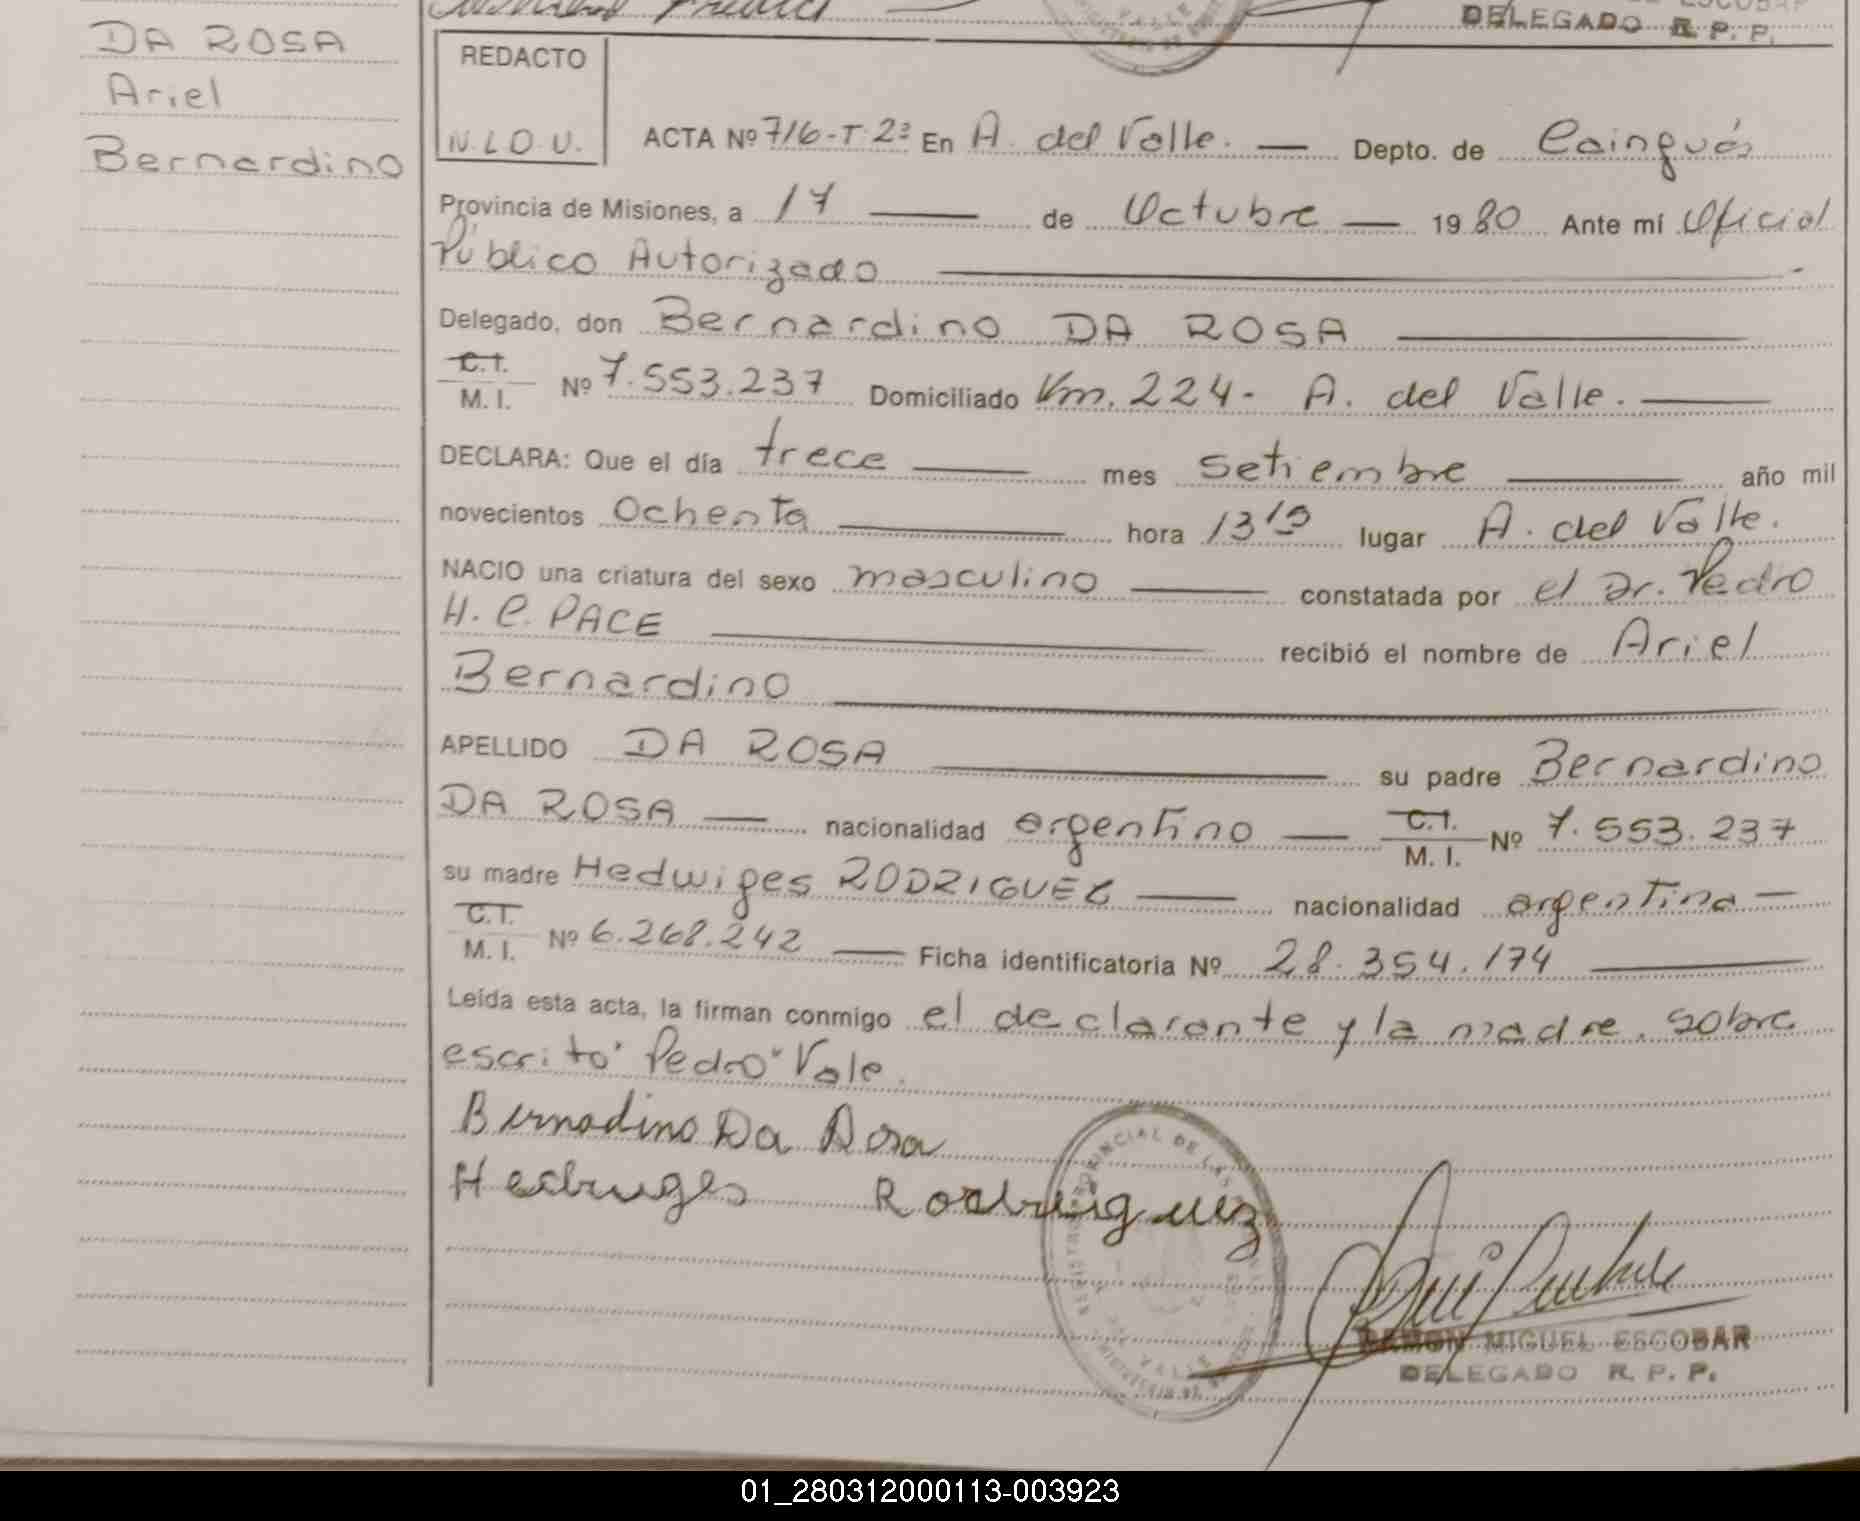 DELEGADO R. P. P.
DA ROSA
Ariel
Bernardino
REDACTO
N. L. D. V.
ACTA Nº 716-T.2º En A. del Valle. — Depto. de Cainguás
Provincia de Misiones, a 17 — de Octubre — 1980 Ante mí Oficial
Público Autorizado
Delegado, don Bernardino DA ROSA
C.I.
M. I. Nº 7.553.237 Domiciliado Km. 224- A. del Valle.
DECLARA: Que el día trece — mes setiembre — año mil
novecientos ochenta — hora 13 15 lugar A. del Valle.
NACIO una criatura del sexo masculino — constatada por el Dr. Pedro
H. C. PACE — recibió el nombre de Ariel
Bernardino
APELLIDO DA ROSA — su padre Bernardino
DA ROSA — nacionalidad argentino — C.I. M. I. Nº 7.553.237
su madre Hedwiges RODRIGUEZ — nacionalidad argentina —
C.I.
M. I. Nº 6.268.242 — Ficha identificatoria Nº 28.354.174
Leída esta acta, la firman conmigo el declarante y la madre. Sobre
escrito "Pedro" Vale.
Bernadino Da Rosa
Hedwiges Rodriiguez
RAMON MIGUEL ESCOBAR
DELEGADO R. P. P.
01_280312000113-003923